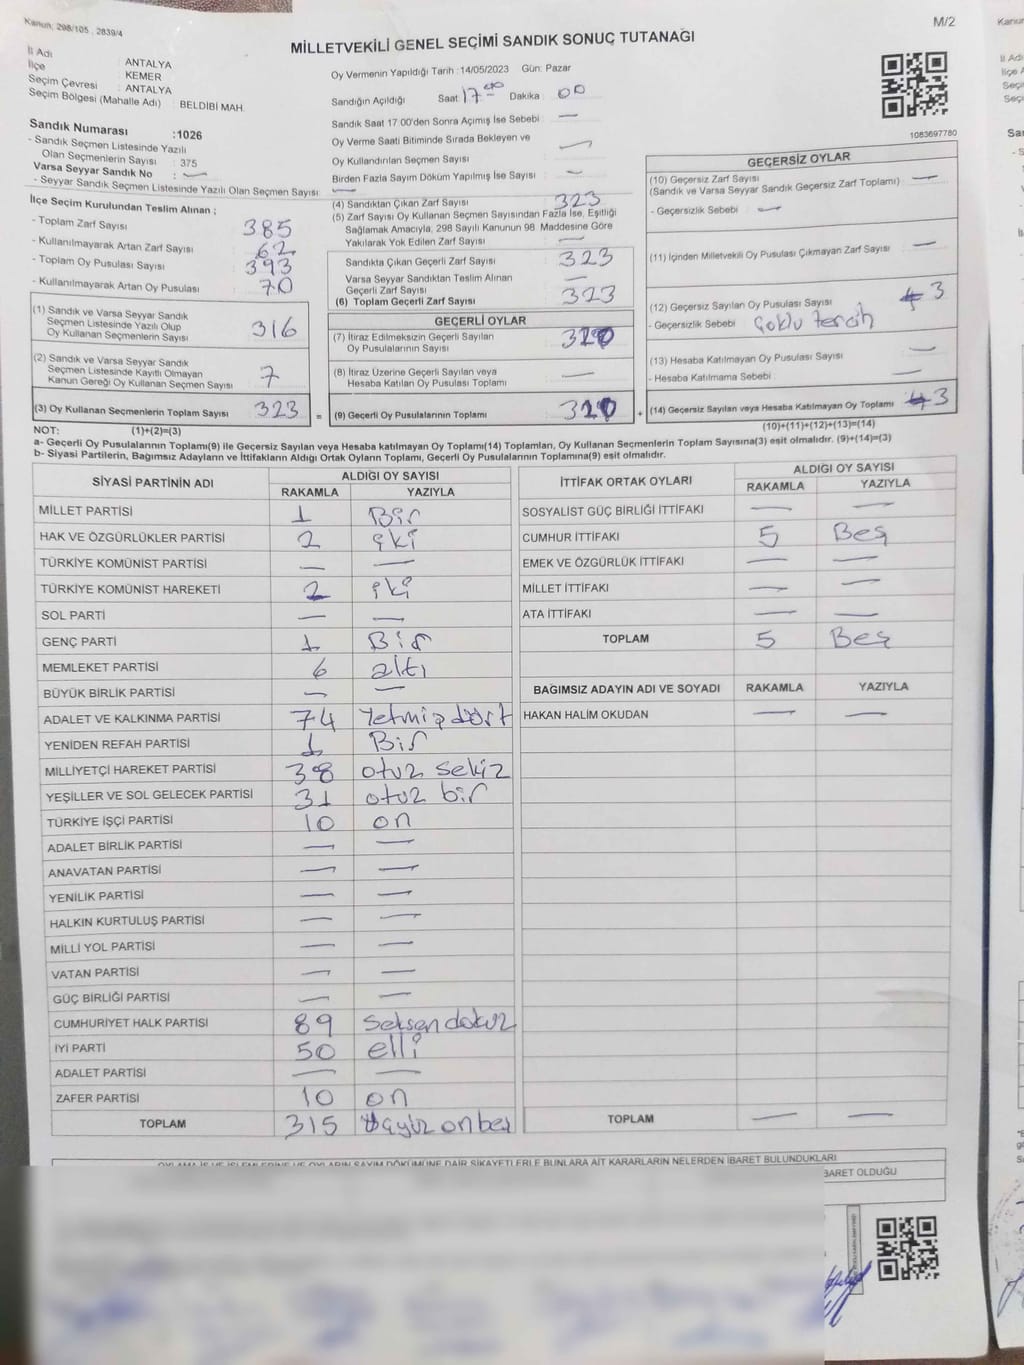 Kanun: 298/105 , 2839/4
M/2
MİLLETVEKİLİ GENEL SEÇİMİ SANDIK SONUÇ TUTANAĞI
İl Adı : ANTALYA
İlçe : KEMER
Seçim Çevresi : ANTALYA
Seçim Bölgesi (Mahalle Adı) : BELDİBİ MAH.
Oy Vermenin Yapıldığı Tarih :14/05/2023 Gün: Pazar
Sandığın Açıldığı Saat 17 00 Dakika 00
Sandık Saat 17:00'den Sonra Açımış İse Sebebi —
Oy Verme Saati Bitiminde Sırada Bekleyen ve
Oy Kullandırılan Seçmen Sayısı —
Birden Fazla Sayım Döküm Yapılmış İse Sayısı —
1083697780
Sandık Numarası :1026
- Sandık Seçmen Listesinde Yazılı
Olan Seçmenlerin Sayısı : 375
Varsa Seyyar Sandık No : —
- Seyyar Sandık Seçmen Listesinde Yazılı Olan Seçmen Sayısı : —
İlçe Seçim Kurulundan Teslim Alınan ;
- Toplam Zarf Sayısı 385
- Kullanılmayarak Artan Zarf Sayısı 62
- Toplam Oy Pusulası Sayısı 393
- Kullanılmayarak Artan Oy Pusulası 70
(1) Sandık ve Varsa Seyyar Sandık
Seçmen Listesinde Yazılı Olup
Oy Kullanan Seçmenlerin Sayısı 316
(2) Sandık ve Varsa Seyyar Sandık
Seçmen Listesinde Kayıtlı Olmayan
Kanun Gereği Oy Kullanan Seçmen Sayısı 7
(3) Oy Kullanan Seçmenlerin Toplam Sayısı 323 =
(4) Sandıktan Çıkan Zarf Sayısı 323
(5) Zarf Sayısı Oy Kullanan Seçmen Sayısından Fazla İse, Eşitliği
Sağlamak Amacıyla, 298 Sayılı Kanunun 98 Maddesine Göre
Yakılarak Yok Edilen Zarf Sayısı —
Sandıkta Çıkan Geçerli Zarf Sayısı 323
Varsa Seyyar Sandıktan Teslim Alınan
Geçerli Zarf Sayısı —
(6) Toplam Geçerli Zarf Sayısı 323
GEÇERLİ OYLAR
(7) İtiraz Edilmeksizin Geçerli Sayılan
Oy Pusulalarının Sayısı 320
(8) İtiraz Üzerine Geçerli Sayılan veya
Hesaba Katılan Oy Pusulası Toplamı —
(9) Geçerli Oy Pusulalarının Toplamı 320 +
GEÇERSİZ OYLAR
(10) Geçersiz Zarf Sayısı
(Sandık ve Varsa Seyyar Sandık Geçersiz Zarf Toplamı) —
- Geçersizlik Sebebi : —
(11) İçinden Milletvekili Oy Pusulası Çıkmayan Zarf Sayısı —
(12) Geçersiz Sayılan Oy Pusulası Sayısı 3
- Geçersizlik Sebebi Çoklu tercih
(13) Hesaba Katılmayan Oy Pusulası Sayısı —
- Hesaba Katılmama Sebebi : —
(14) Geçersiz Sayılan veya Hesaba Katılmayan Oy Toplamı 3
NOT: (1)+(2)=(3)
(10)+(11)+(12)+(13)=(14)
a- Geçerli Oy Pusulalarının Toplamı(9) ile Geçersiz Sayılan veya Hesaba katılmayan Oy Toplamı(14) Toplamları, Oy Kullanan Seçmenlerin Toplam Sayısına(3) eşit olmalıdır. (9)+(14)=(3)
b- Siyasi Partilerin, Bağımsız Adayların ve İttifakların Aldığı Ortak Oyların Toplamı, Geçerli Oy Pusulalarının Toplamına(9) eşit olmalıdır.
SİYASİ PARTİNİN ADI ALDIĞI OY SAYISI
RAKAMLA YAZIYLA
MİLLET PARTİSİ 1 Bir
HAK VE ÖZGÜRLÜKLER PARTİSİ 2 iki
TÜRKİYE KOMÜNİST PARTİSİ — —
TÜRKİYE KOMÜNİST HAREKETİ 2 iki
SOL PARTİ — —
GENÇ PARTİ 1 Bir
MEMLEKET PARTİSİ 6 altı
BÜYÜK BİRLİK PARTİSİ — —
ADALET VE KALKINMA PARTİSİ 74 Yetmiş dört
YENİDEN REFAH PARTİSİ 1 Bir
MİLLİYETÇİ HAREKET PARTİSİ 38 otuz sekiz
YEŞİLLER VE SOL GELECEK PARTİSİ 31 otuz bir
TÜRKİYE İŞÇİ PARTİSİ 10 on
ADALET BİRLİK PARTİSİ — —
ANAVATAN PARTİSİ — —
YENİLİK PARTİSİ — —
HALKIN KURTULUŞ PARTİSİ — —
MİLLİ YOL PARTİSİ — —
VATAN PARTİSİ — —
GÜÇ BİRLİĞİ PARTİSİ — —
CUMHURİYET HALK PARTİSİ 89 seksen dokuz
İYİ PARTİ 50 elli
ADALET PARTİSİ — —
ZAFER PARTİSİ 10 on
TOPLAM 315 üçyüz onbeş
İTTİFAK ORTAK OYLARI ALDIĞI OY SAYISI
RAKAMLA YAZIYLA
SOSYALİST GÜÇ BİRLİĞİ İTTİFAKI — —
CUMHUR İTTİFAKI 5 Beş
EMEK VE ÖZGÜRLÜK İTTİFAKI — —
MİLLET İTTİFAKI — —
ATA İTTİFAKI — —
TOPLAM 5 Beş
BAĞIMSIZ ADAYIN ADI VE SOYADI RAKAMLA YAZIYLA
HAKAN HALİM OKUDAN — —
TOPLAM — —
OYLAMA İŞ VE İŞLEMLERİNE VE OYLARIN SAYIM DÖKÜMÜNE DAİR ŞİKAYETLERLE BUNLARA AİT KARARLARIN NELERDEN İBARET BULUNDUKLARI
BARET OLDUĞU